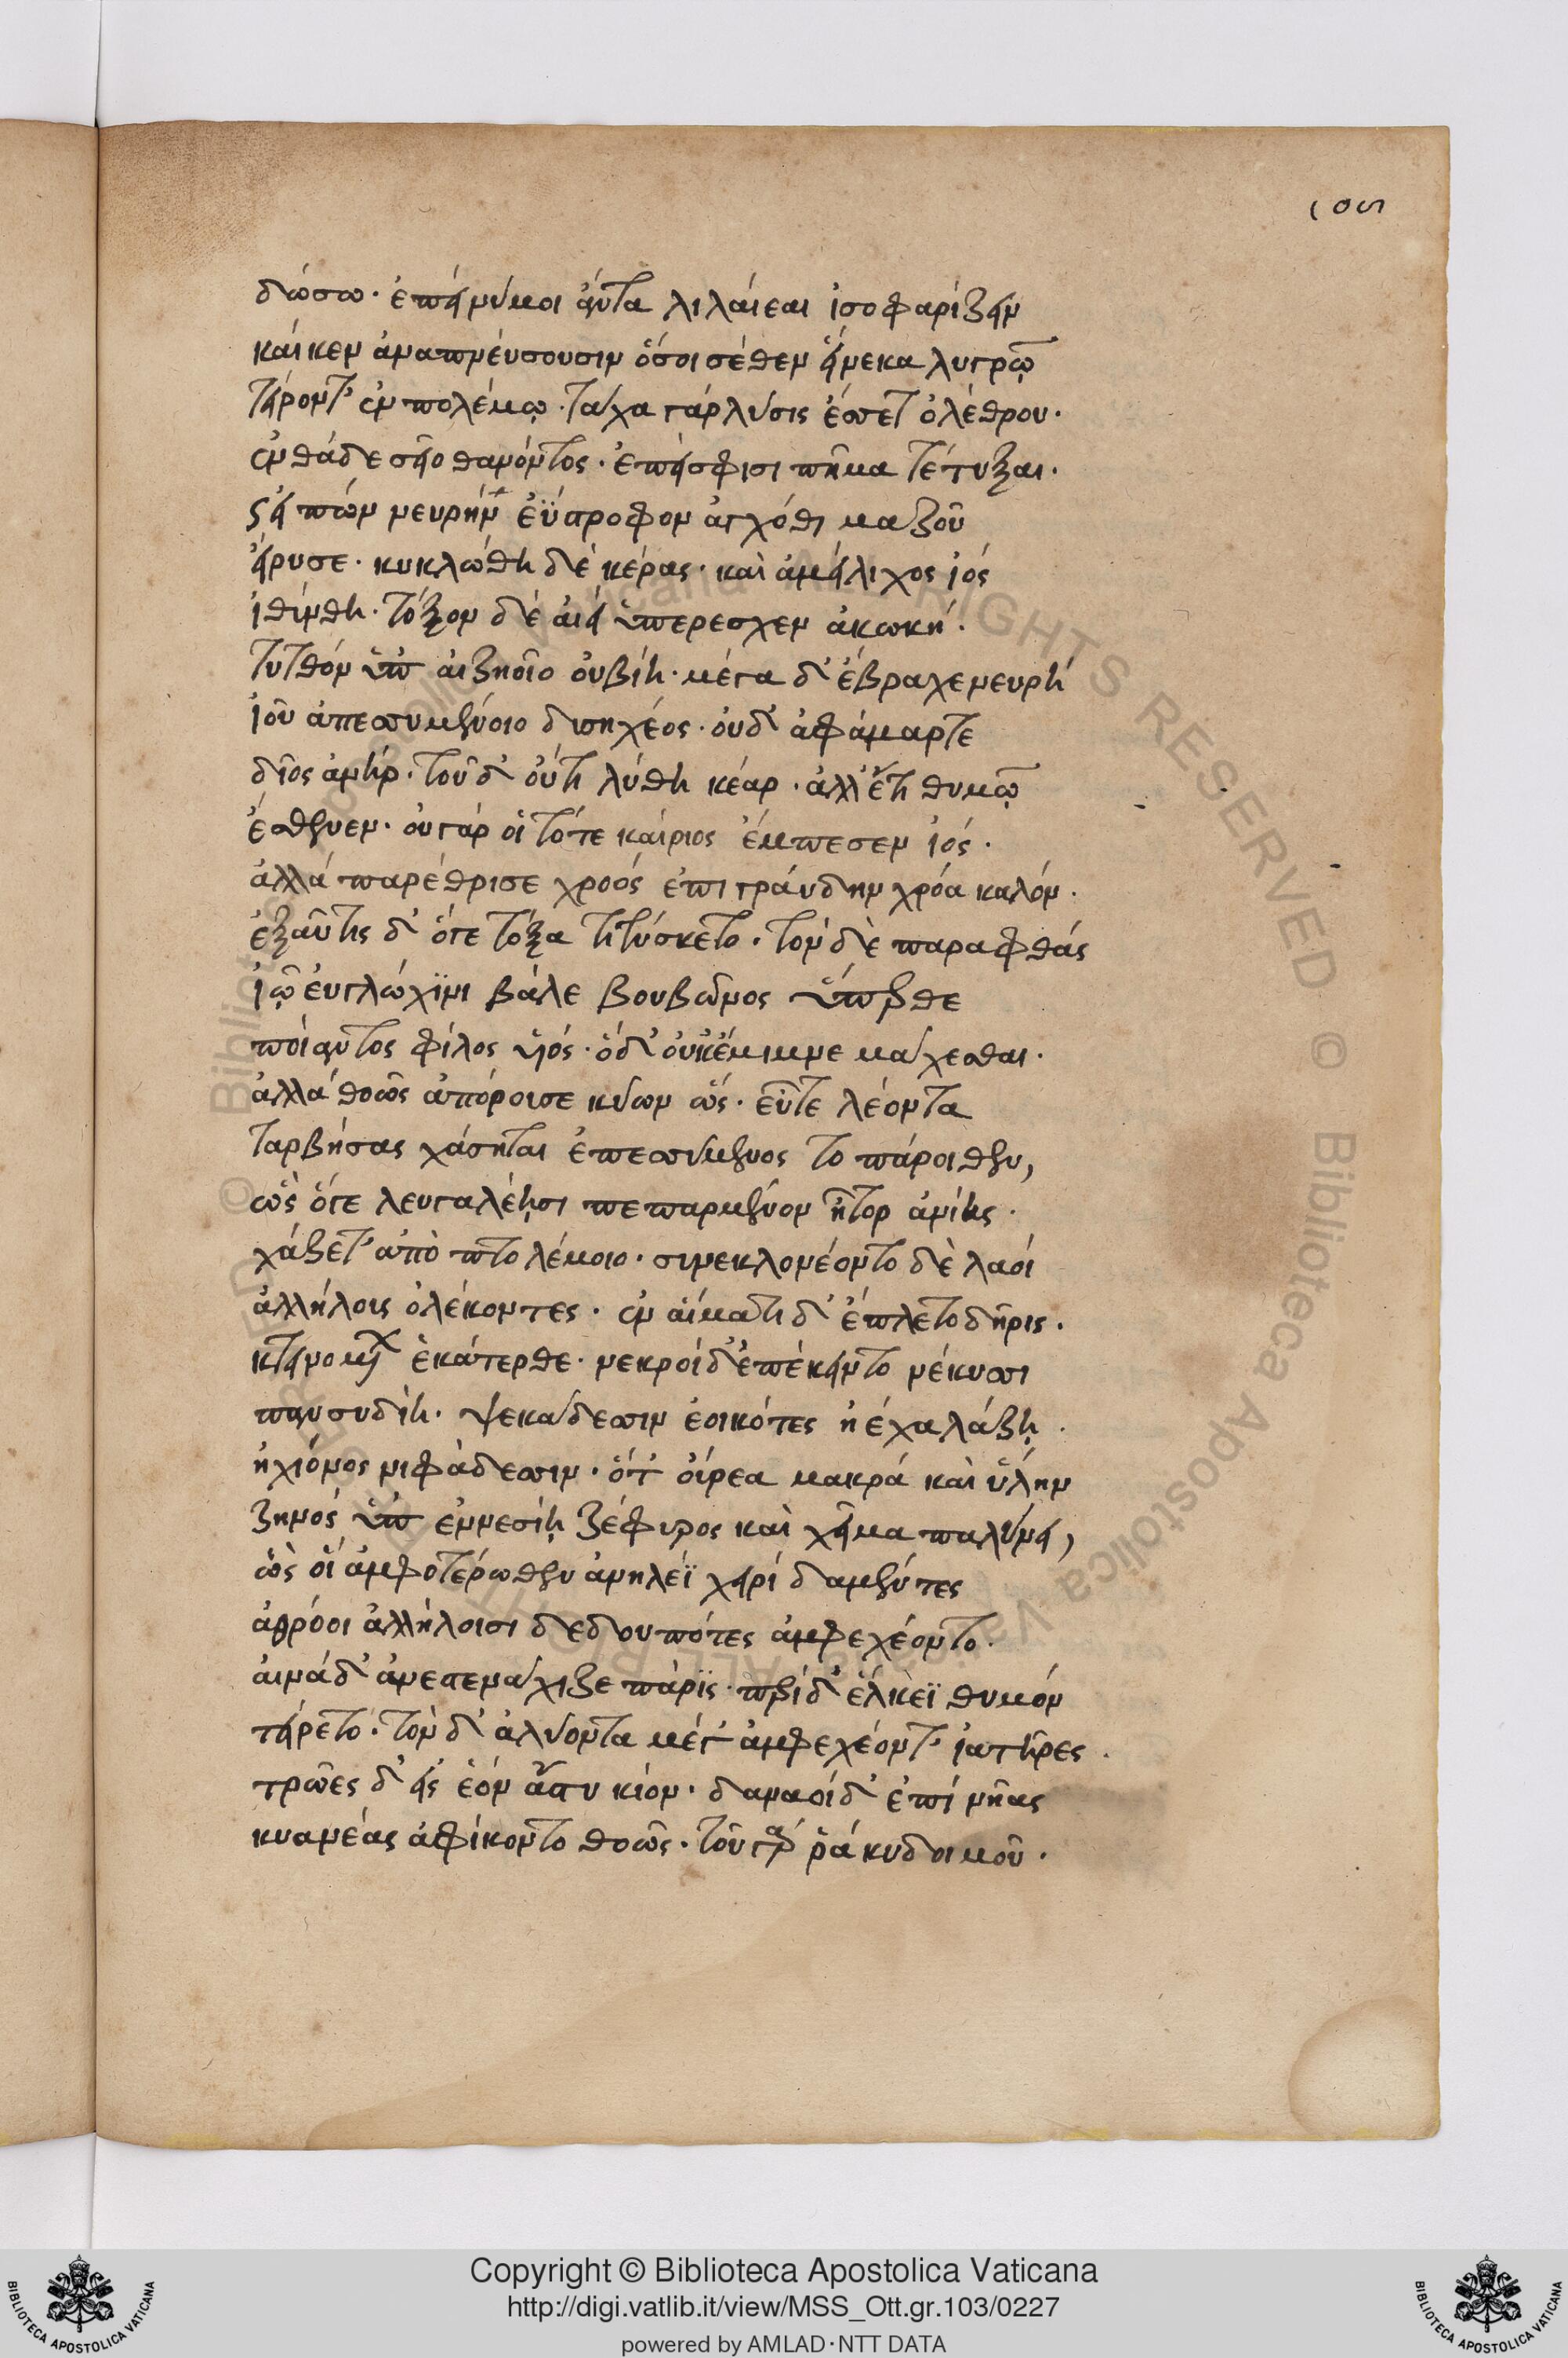 106
δώσω· ἐπεί νύ μοι ἄντα λιλαίεαι ἰσοφαρίζειν
καί κεν ἀναπνεύσουσιν ὅσοι σέθεν εἵνεκα λυγρῶ
τείροντ' ἐν πολέμω· τάχα γάρ λύσις ἔσσετ' ὀλέθρου·
ἐνθάδε σεῖο θανόντος· ἐπεί σφισι πῆμα τέτυξαι·
ὣς εἰπών νευρήν ἐΰστροφον ἀγχόθι μαζοῦ
εἴρυσε· κυκλώθη δὲ κέρας· καὶ ἀμείλιχος ἰός
ἰθύνθη· τόξον δὲ αἰεί ὑπερέσχεν ἀκωκή·
τυτθόν ὑπ' αἰζηοῖο οὐ βίῃ· μέγα δ' ἔβραχε νευρή
ἰοῦ ἀπεσσυμένοιο δυσηχέος· οὐδ' ἀφάμαρτε
δῖος ἀνήρ· τοῦ δ' οὔτι λύθη κέαρ· ἀλλ' ἔτι θυμῶ
ἔσθενεν· οὐ γάρ οἱ τότε καίριος ἔμπεσεν ἰός·
ἀλλά παρέθρισε χροός ἐπιγράυδην χρόα καλόν·
ἐξαῦτις δ' ὅγε τόξα τιτύσκετο· τὸν δὲ παραφθάς
ἰῶ ἐυγλώχϊνι βάλε βουβῶνος ὕπερθε
ποίαντος φίλος υἱός· ὁ δ' οὐκέτ' ἔμιμνε μάχεσθαι·
ἀλλά θοῶς ἀπόρουσε κύων ὥς· εὖτε λέοντα
ταρβήσας χάσηται ἐπεσσύμενος το πάροιθεν,
ὣς ὅγε λευγαλέῃσι πεπαρμένον ἦτορ ἀνίης·
χάζετ' ἀπὸ πτολέμοιο· συνεκλονέοντο δὲ λαοί
ἀλλήλους ὀλέκοντες· ἐν αἵματι δ' ἔπλετο δῆρις·
κτεινομένων ἑκάτερθε· νεκροί δ' ἐπέκειντο νέκυσσι
πανσυδίῃ· ψεκάδεσσιν ἐοικότες ἠέ χαλάζῃ·
ἢ χιόνος νιφάδεσσιν· ὅτ' οὔρεα μακρά καὶ ὕλην
ζηνός ὑπ' ἐννεσίῃ ζέφυρος καὶ χεῖμα παλύνει,
ὣς οἵ ἀμφοτέρωθεν ἀνηλέϊ χειρί δαμέντες
ἀθρόοι ἀλλήλοισι δεδουπότες ἀμφεχέοντο·
αἰνά δ' ἀνεστενάχιζε πάρϊς· περί δ' ἕλκεϊ θυμόν
τείρετο· τὸν δ' ἀλύοντα μέγ' ἀμφεχέοντ' ἰατῆρες·
τρῶες δ' εἰς ἑόν ἄστυ κίον· δαναοί δ' ἐπί νῆας
κυανέας ἀφίκοντο θοῶς· τοῦ γάρ ῥά κυδοιμοῦ·
Copyright © Biblioteca Apostolica Vaticana
http://digi.vatlib.it/view/MSS_Ott.gr.103/0227
powered by AMLAD·NTT DATA